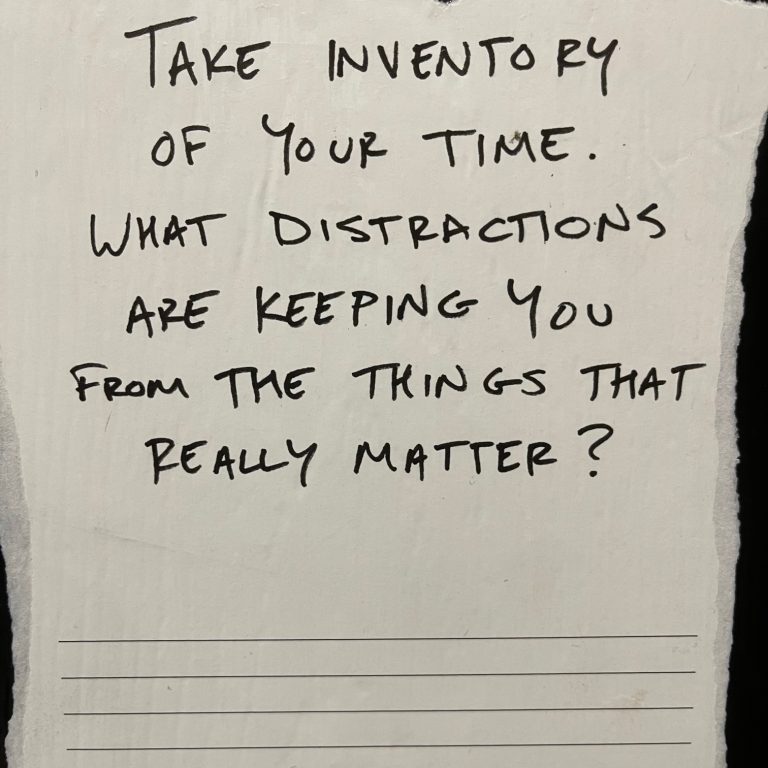 TAKE INVENTORY
OF YOUR TIME.
WHAT DISTRACTIONS
ARE KEEPING YOU
FROM THE THINGS THAT
REALLY MATTER?